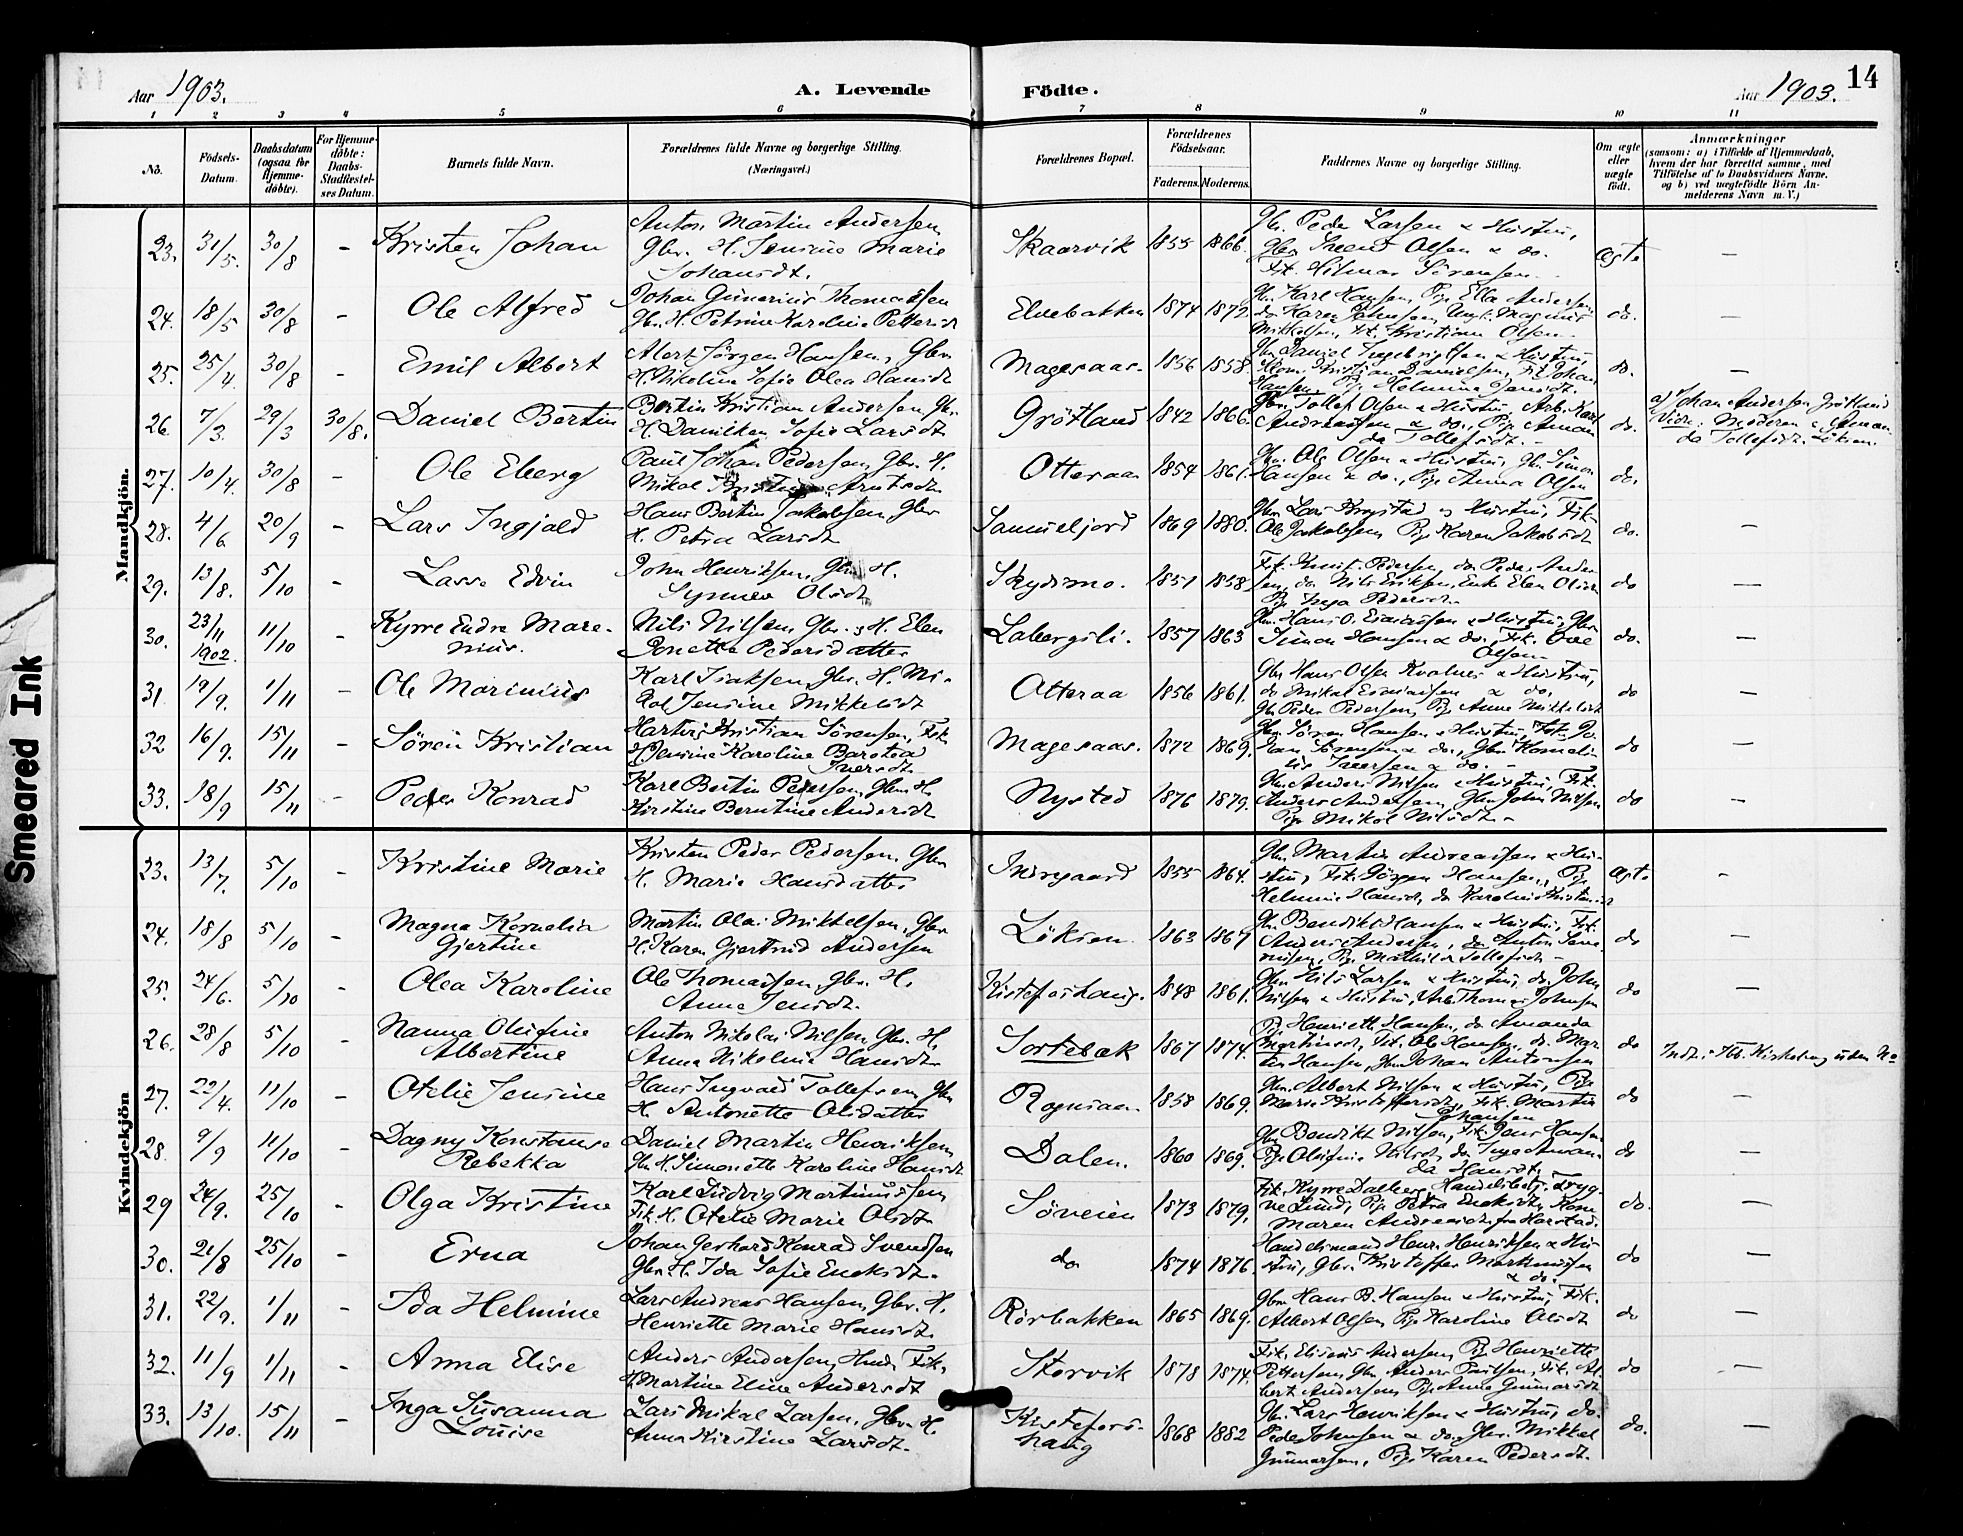 Aar 1903.
A. Levende
Födte.
Aar 1903.
14
1 2 3 4 5 6 7 8 9 10 11
No.
Födsels-Datum.
Daabsdatum (ogsaa for Hjemme-döbte).
For Hjemme-döbte: Daabs-Stadfæstel-ses Datum.
Barnets fulde Navn.
Forældrenes fulde Navne og borgerlige Stilling. (Næringsvei.)
Forældrenes Bopæl.
Forældrenes Födselsaar.
Faderens. Moderens.
Faddernes Navne og borgerlige Stilling.
Om ægte eller uægte födt.
Anmærkninger
(saasom: a) i Tilfælde af Hjemmedaab, hvem der har forrettet samme, med Tilföielse af to Daabsvidners Navne, og b) ved uægtefödte Börn An-melderens Navn m. V.)
Mandkjön.
23. 31/5. 30/8 - Kristen Johan
Anton Martin Andersen
Gbr. H. Jensine Marie
Johansdt.
Skaarvik 1855 1866.
Gbr. Peder Larsen & Hustru,
Gbr. Olsen & do.
Fik. Hilmar Sörensen
Ægte —
24. 18/5 30/8 - Ole Alfred
Johan Gunerius Thomassen
Gbr. H. Petrine Karoline
Elvebakken 1874 1872.
Gbr. Karl Hansen, Pige Ella Andersen
do Karen Johnsen, Magnus
Mikkelsen, Kristian Olsen
do. —
25. 25/4. 30/8 - Emil Albert
Jörgen Hansen, Gbr
H. Nikoline Sofie Olea Hansdt
Magesaas. 1856 1858.
Gbr. Daniel Ingebrigtsen & Hustru,
Kristian Danielsen, Fik Johan
Hansen, Pige Helmine Jensdt.
do. —
26. 7/3. 29/3 30/8. Daniel Bertin
Bertin Kristian Andersen, Gbr.
H. Sofie Larsdt
Grötland 1842 1866.
Gbr. Tollef Olsen & Hustru, Arb. Karl
Andreassen & do., Pige Aman
da Tollefsdt. -
do.
a) Johan Andersen Grötland
Vidn: Moderen & Aman-
da Tollefsdt. Löksen.
27. 10/4. 30/8 - Ole Eberg
Paul Johan Pedersen, Gbr. H.
Mikal
Otteraa 1854 1861.
Gbr. Ole Olsen & Hustru, Gbr. Simon
Hansen & do., Pige Anna Olsen
do.
28. 4/6. 20/9 - Lars Ingjald
Hans Bertin Jakobsen Gbr
H. Petra Larsdt
1869 1880.
Gbr. Lars & Hustru, Fik.
Ole Jakobsen Pige Karen Jakobsdt
do. —
29. 13/8. 5/10 - Lasse Edvin
John Henriksen, Gbr. H.
Olsdt
Skydsmo. 1851 1858
Fik. Knut Pedersen, do Peder
do Nils Eriksen, Enke Elen
Pige Inga Pedersdt.
do —
30. 23/11 1902. 11/10 - Kyrre Endre Mare-
nius.
Nils Nilsen, Gbr. & H. Elen
Jonette Pedersdatter
Labergsli. 1857 1863
Gbr. Hans O. & Hustru, Gbr
Simon Hansen & do., Fik. Ove
Olsen
do. —
31. 19/9. 1/11 - Ole Marinius
Karl Isaksen, Gbr. H. Mi-
kal Jensine Mikkelsdt
Otteraa 1856 1861.
Gbr Hans Olsen Kvalnes & Hustru,
do Mikal & do.
Gbr Peder Pedersen, Pige Anne Mikkelsdt
do —
32 16/9. 15/11 - Sören Kristian
Kristian Sörensen, Fik.
H. Jensine Karoline
Iversdt.
Magesaas. 1872 1869.
Gbr. Sören Hansen & Hustru, Fik. Jo
han Sörensen & do., Gbr. Korneli-
us & do. -
do —
33. 18/9 15/11 - Peder Konrad
Karl Bertin Pedersen, Gbr. H.
Kirstine Berntine Andersdt
Nysted 1876 1879.
Gbr. Anders Nilsen & Hustru, Fik.
Anders Andersen, Gbr John Nilsen
Pige Mikol Nilsdt -
do —
Kvindekjön
23. 13/7. 5/10 - Kristine Marie
Kristen Peder Pedersen, Gbr
H. Marie Hansdatter
Indregaard 1855 1864.
Gbr. Martin Andreassen & Hus-
tru, Fik. Jörgen Hansen, Pige
Helmine Hansdt, do Karoline
Ægte -
24. 18/8 5/10 - Magna Kornelia
Gjertine
Martin Olai Mikkelsen, Gbr
H. Karen Gjertrud Andersen
Löksen 1863 1867
Gbr. Bendikt Hansen & Hustru, Fik.
Anders Andersen, do Anton
Pige Mathilde Tollefsdt -
do —
25. 24/6. 5/10 - Olea Karoline
Ole Thomassen, Gbr. H.
Anne Jensdt.
Kistefoshaug. 1848 1861.
Gbr. Nils Larsen & Hustru, do. John
Nilsen & Hustru, Arb. Thomas Johnsen
do —
26. 28/8 5/10 - Nanna Olufine
Albertine
Anton Nikolai Nilsen, Gbr. H.
Anna Nikoline Hansdt.
Sortebæk 1867 1874.
Pige Henriette Hansen, do Amanda
Martinsdt, Fik. Ole Hansen, do. Mar-
tin Hansen, Gbr. Johan Antonsen
do
27. 22/4. 11/10 - Otelie Jensine
Hans Ingvald Tollefsen, Gbr
H. Antonette Olsdatter
Rognsaa 1858 1869.
Gbr. Albert Nilsen & Hustru, Pige
Marie Kristoffersdt, Fik. Martin
Johansen
do —
28. 9/9 11/10 - Dagny Konstanse
Rebekka
Daniel Martin Henriksen
Gbr. H. Simonette Karoline Hansdt
Dalen. 1860 1869.
Gbr. Bendikt Nilsen, Fik. Jens Hansen
Pige Olufine Nilsdt, do Inga Aman-
da Hansdt
do —
29 24/9. 25/10 - Olga Kristine
Karl Ludvig Martinussen
Fik. H. Otelie Marie Olsdt.
Söveien 1873 1879.
Fik. Kyrre Dalberg, Handelsbetj. Tryg-
ve Lund, Pige Petra
Maren fra Harstad.
do. —
30. 21/8 25/10 - Erna
Johan Gerhard Konrad Svendsen
Gbr. H. Ida Sofie
do 1874 1876.
Handelsmand Henr. Henriksen & Hu-
stru, Gbr. Kristoffer Markussen
& do.
do —
31. 22/9. 1/11 - Ida Helmine
Lars Andreas Hansen, Gbr. H.
Henriette Marie Hansdt.
Rörbakken 1865 1869.
Gbr. Hans B. Hansen & Hustru, Fik.
Albert Olsen, Pige Karoline Olsdt
do —
32. 11/9 1/11 - Anna Elise
Anders Andersen, Fik.
H. Martine Eline Andersdt
Storvik 1878 1874.
Fik. Andersen, Pige Henriette
Pettersen, Gbr. Anders Paulsen, Fik. Al-
bert Andersen, Pige Anna Gunnarsdt
do —
33. 13/10. 15/11 - Inga Susanna
Louise
Lars Mikal Larsen, Gbr. H.
Anna Kirstine Larsdt.
Kistefos-
haug 1868 1882
Gbr. Lars Henriksen & Hustru, do.
Peder Johnsen & do., Gbr. Mikkel
Gunnarsen, Pige Karen Pedersdt.
do. —
Smeared Ink